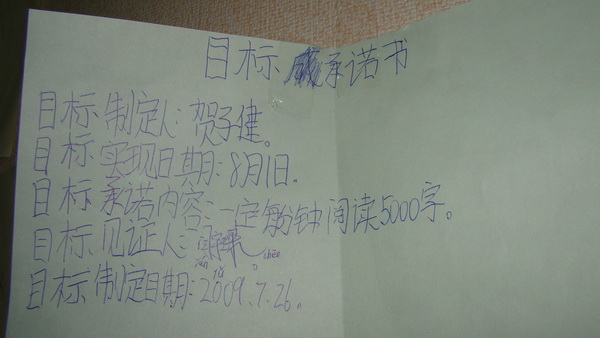 目标承诺书
目标制定人：贺子健。
目标实现日期：8月1日。
目标承诺内容：一定每分钟阅读5000字。
目标见证人：
目标制定日期：2009.7.26。